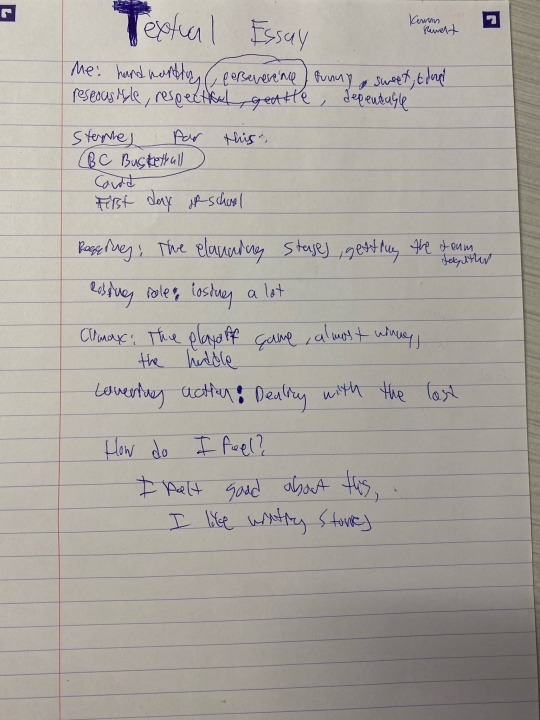 Textual Essay
Me: hard working, perseverence, funny, sweet, kind
respectful, gentle, dependable
Stories for this:
BC Basketball
Covid
First day of school
The planning stages, getting the team together
losing a lot
Climax: The playoff game, almost winning,
the huddle
Lowering action: Dealing with the lost
How do I feel?
I felt good about this,
I like writing stories